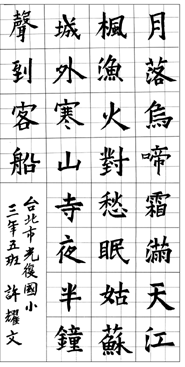 月落烏啼霜滿天江
楓漁火對愁眠姑蘇
城外寒山寺夜半鐘
聲到客船
台北市光復國小
三年五班 許耀文